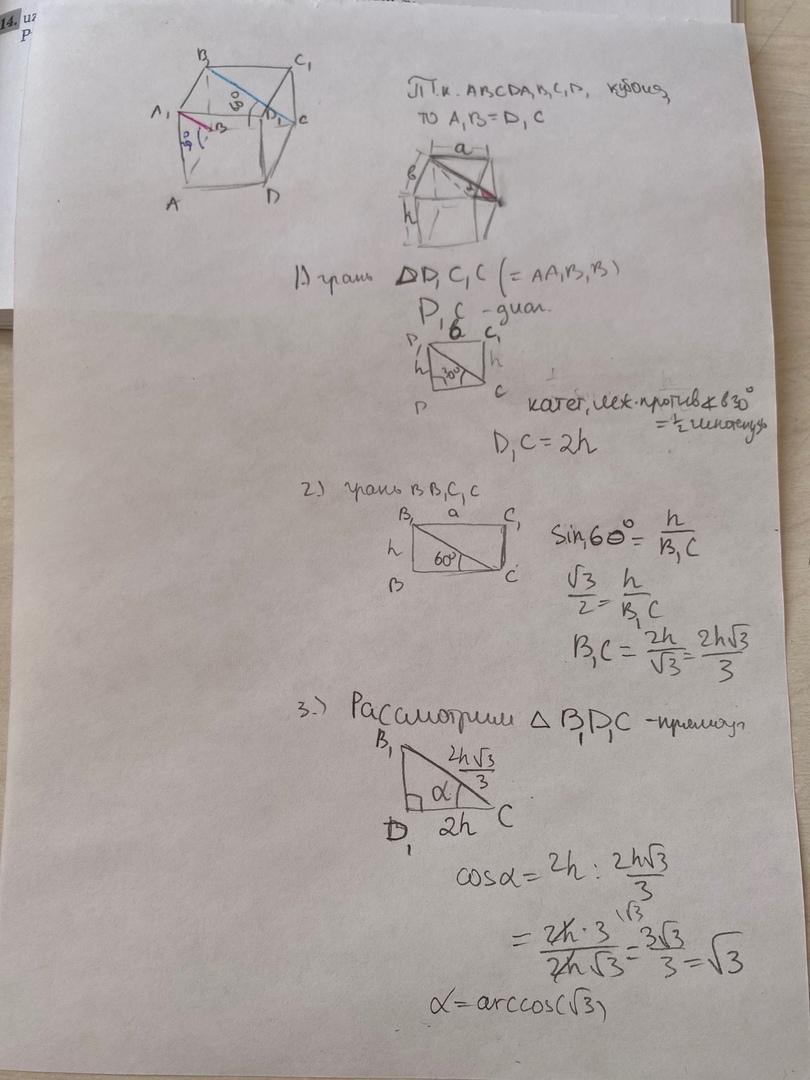 14.
B₁ C₁
A₁ B D₁ C
A D
П.к. ABCDA₁B₁C₁D₁ кубоид,
то A₁B = D₁C
a
h
1.) грань ΔD₁C₁C (= AA₁B₁B)
D₁C - диаг.
D₁ C₁
h 30° h
D C
катет, леж. против ∢ в 30°
= ½ гипотенузы
D₁C = 2h
2.) грань BB₁C₁C
B₁ a C₁
h 60°
B C
sin 60° = h/B₁C
√3/2 = h/B₁C
B₁C = 2h/√3 = 2h√3/3
3.) Рассмотрим Δ B₁D₁C - прямоуг
B₁ 2h√3/3
α
D₁ 2h C
cosα = 2h : 2h√3/3
= 2h·3/2h√3 \√3 = 3√3/3 = √3
α = arccos(√3)